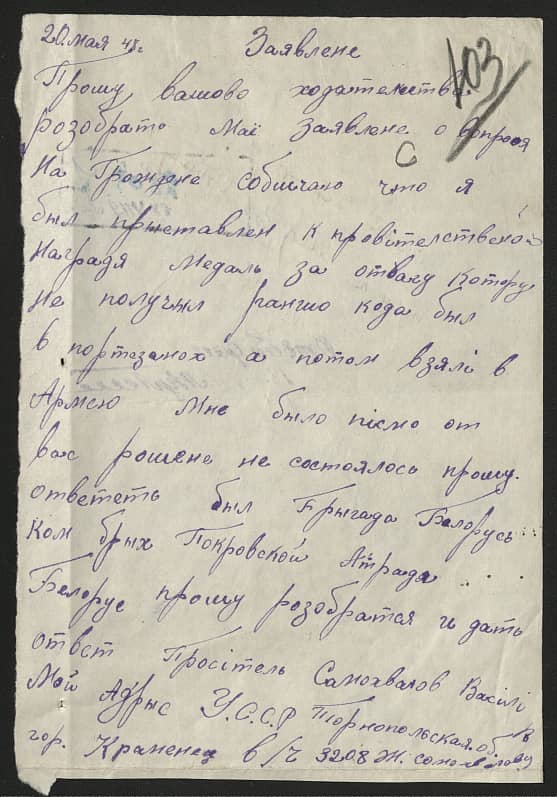 20 мая 48г. Заявлене
103
Прошу вашово ходателства
розобрато Маі Заявлене о вопроя
На Грожжне собшчаю что я
был прыставлен к провітелственой
Наградя Медаль за отвагу котору
не получыл раншо кода был
в портезанох а потом взялі в
Армею Мне было пісмо от
вас рошене не состоялось прошу.
ответеть был Брыгада Белорусь
Ком брых Покровской Атрада
Белорус прошу розобратся и дать
ответ Просітель Самохвалов Васілі
Мой Адрыс У.С.С.Р Торнопольская об
гор. Краменец в/ч 3208 Ж.